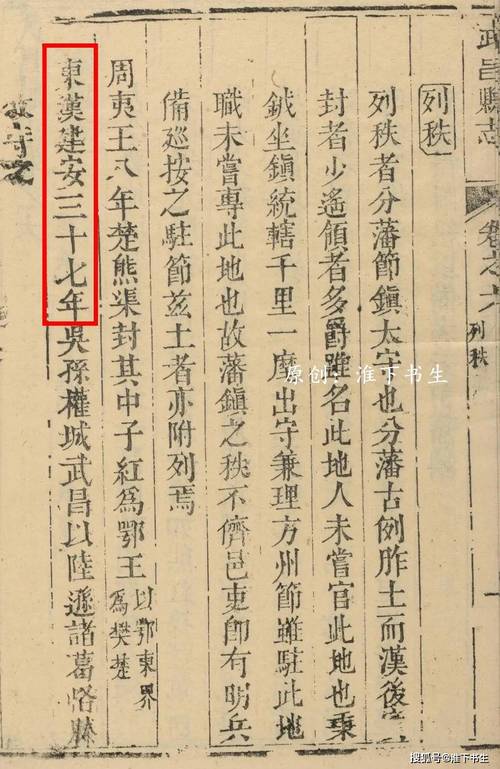 武昌縣志
卷之六
列秩
一
列秩
列秩者分藩節鎮太守也分藩古例胙土而漢後
封者少遙領者多爵雖名此地人未嘗官此地也秉
鉞坐鎮統轄千里一麾出守兼理方州節雖駐此地
職未嘗專此地也故藩鎮之秩不儕邑吏卽有明兵
備巡按之駐節兹土者亦附列焉
周夷王八年楚熊渠封其中子紅爲鄂王以鄂東界
爲樊楚
東漢建安三十七年吳孫權城武昌以陸遜諸葛恪滕
原创：淮下书生
搜狐号@淮下书生